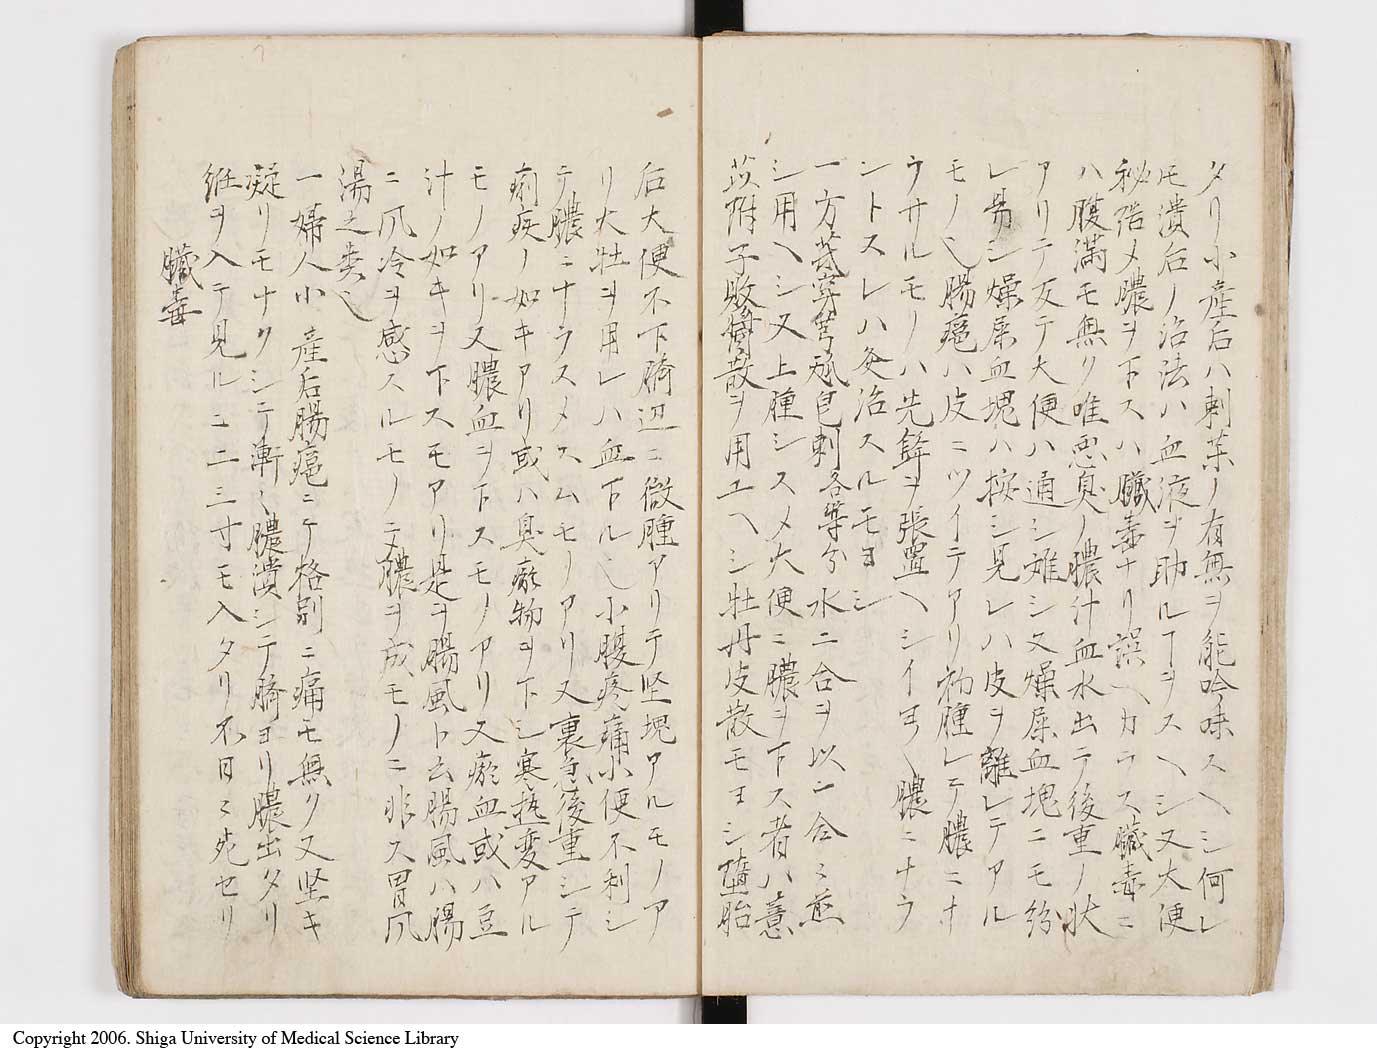 タリ小産后ハ刺茉ノ有無ヲ能吟味スヘシ何レ
モ潰后ノ治法ハ血液ヲ助ルヿヲスヘシ又大便
秘結メ膿ヲ下スハ臓毒ナリ誤ヘカラス臓毒ニ
ハ腹満モ無ク唯悪臭ノ膿汁血水出テ後重ノ状
アリテ反テ大便ハ通シ難シ又燥屎血塊ニモ紛
レ易シ燥屎血塊ハ按シ見レハ皮ヲ離レテアル
モノ也腸癰ハ皮ニツイテアリ初腫レテ膿ニナ
ウサルモノハ先鋒ヲ張置ヘシイヨヽ膿ニナラ
ントスレハ灸治スルモヨシ
一方芎承皀刺各等分水二合ヲ以一合ニ煎
シ用ヘシ又上腫シスメ大便ニ膿ヲ下ス者ハ薏
苡附子敗醤散ヲ用ユヘシ牡丹皮散モヨシ堕胎
后大便不下臍辺ニ微腫アリテ堅塊アルモノア
リ大牡ヲ用レハ血下ル也小腹疼痛小便不利シ
テ膿ニナラスメスムモノアリ又裏急後重シテ
痢疾ノ如キアリ或ハ臭瘀物ヲ下シ寒熱変アル
モノアリ又膿血ヲ下スモノアリ又瘀血或ハ豆
汁ノ如キヲ下スモアリ是ヲ腸風ト云腸風ハ腸
ニ風冷ヲ感スルモノニテ膿ヲ成モノニ非ス胃風
湯之類也
一婦人小産后腸癰ニテ格別ニ痛モ無ク又堅キ
凝リモナクシテ漸々膿潰シテ臍ヨリ膿出タリ
紙ヲ入テ見ルニ二三寸モ入タリ不日ニ死セリ
臓毒
Copyright 2006. Shiga University of Medical Science Library